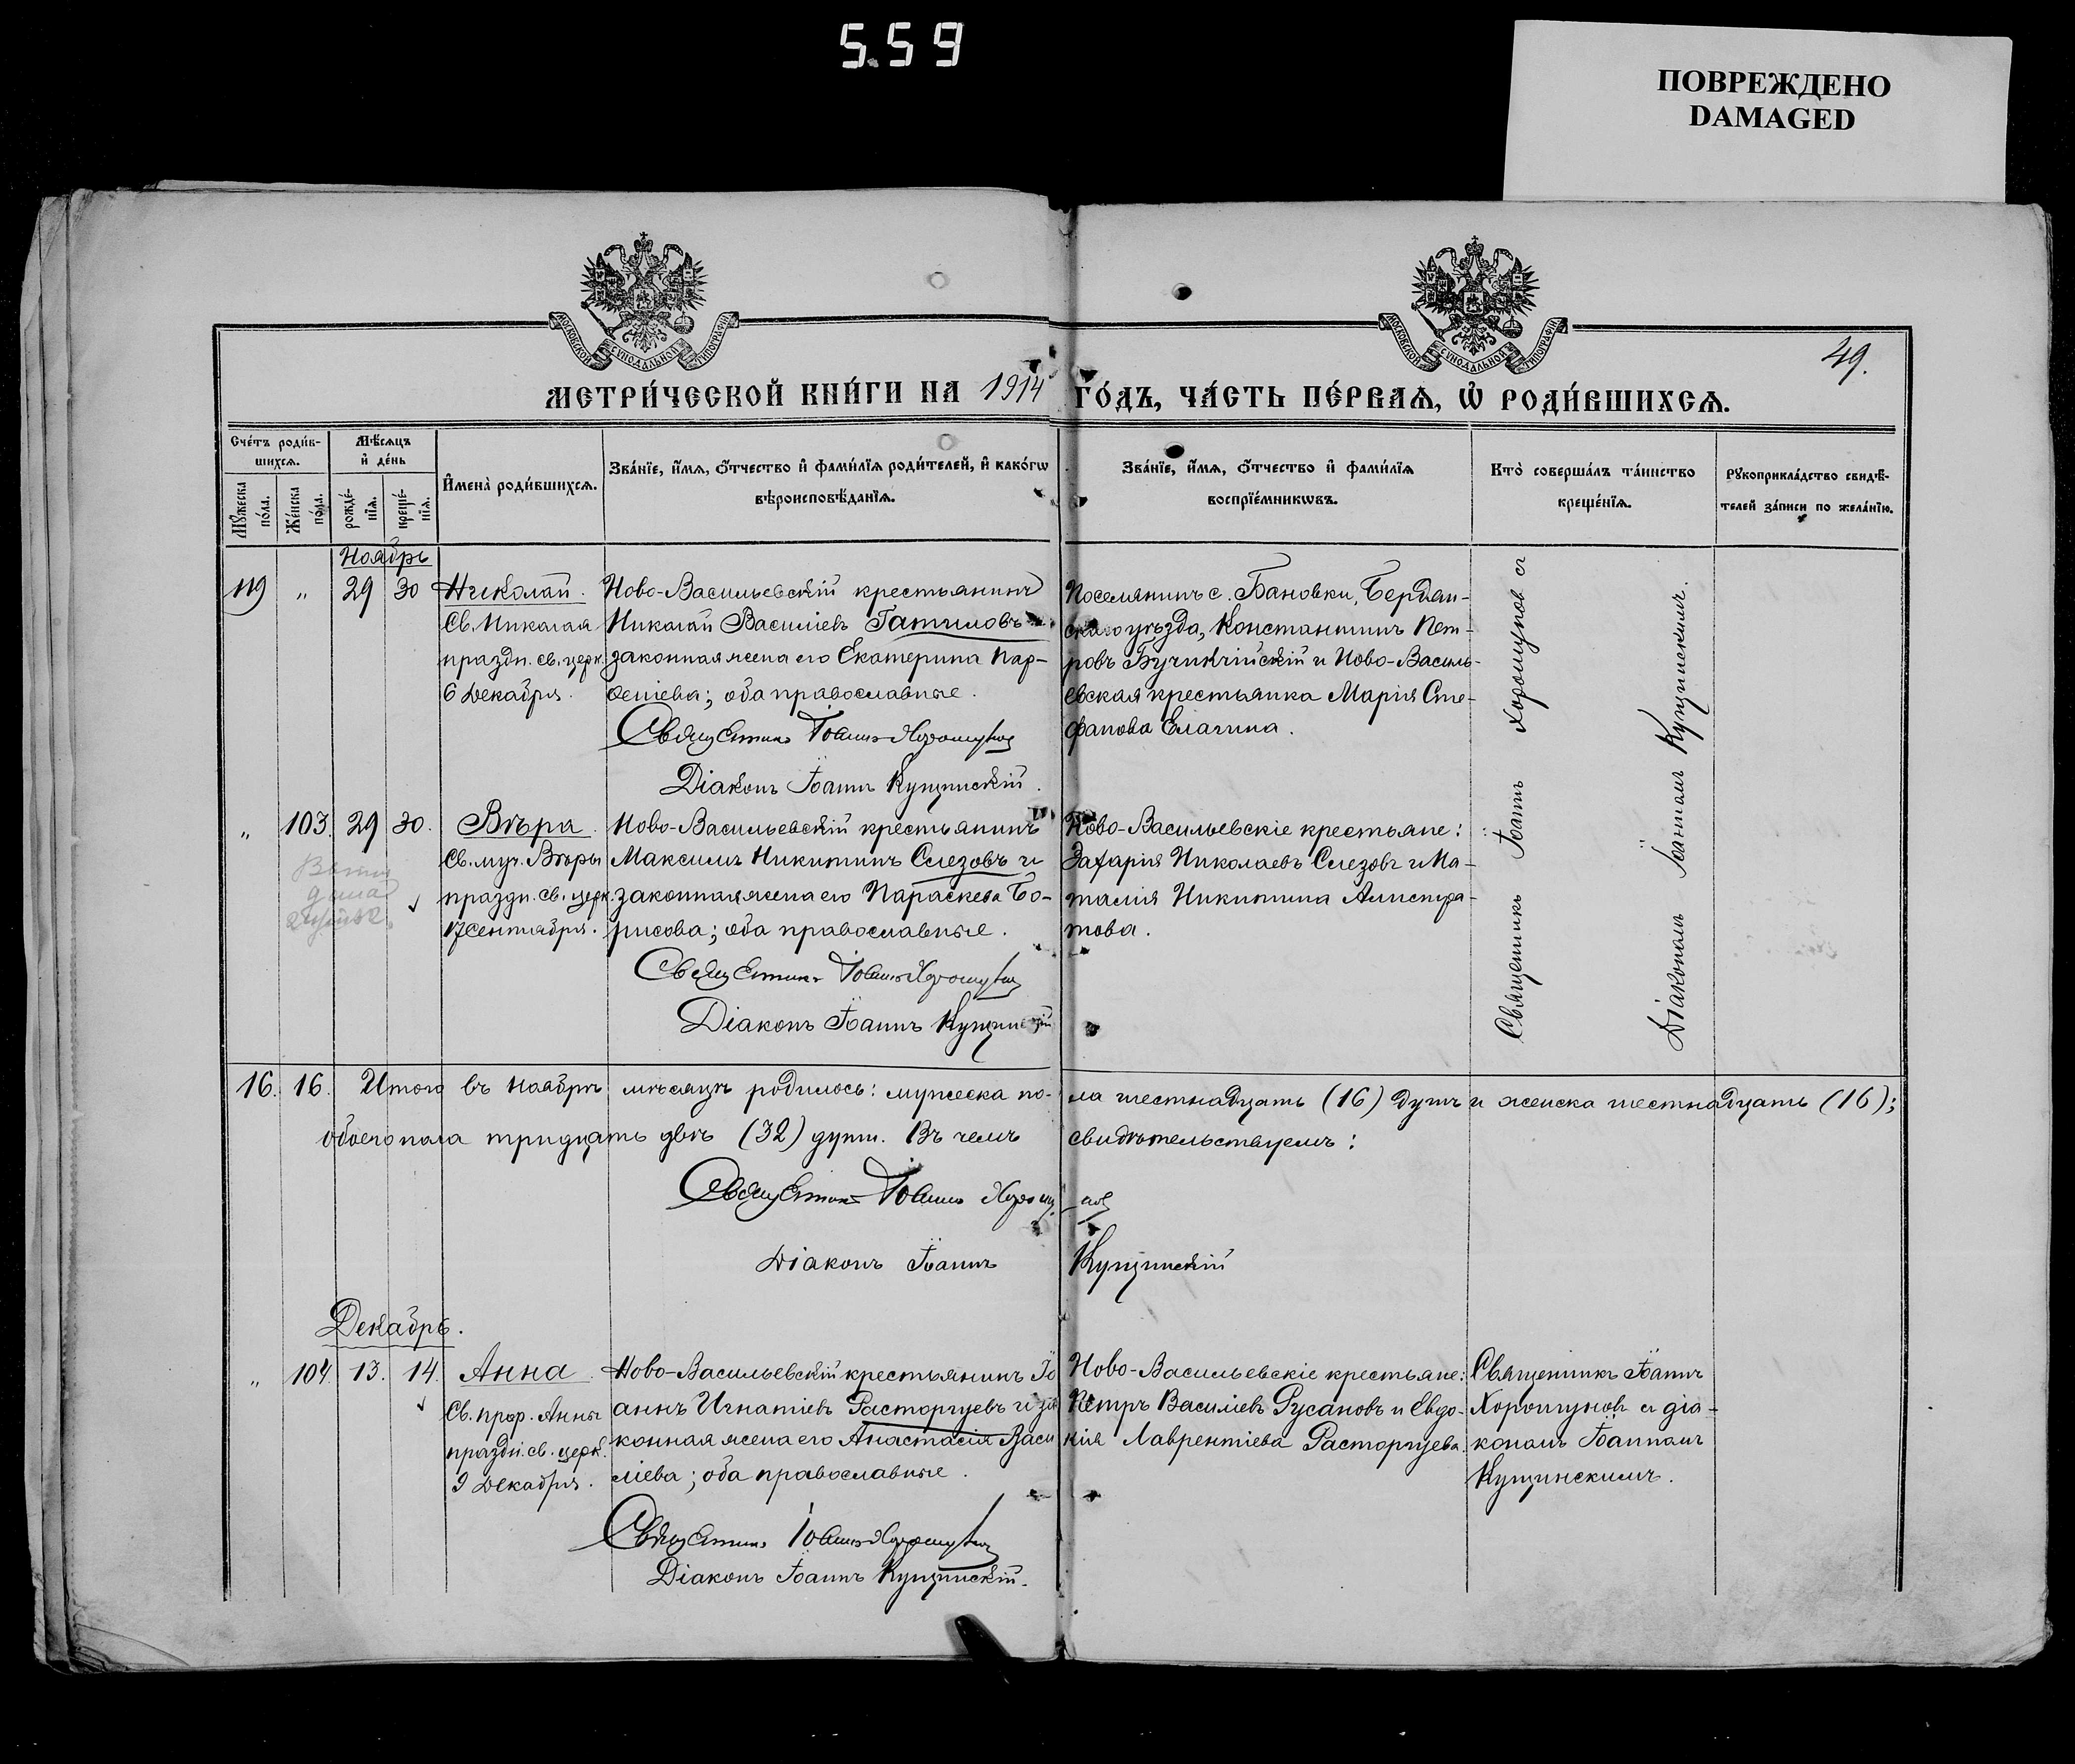 5.59
ПОВРЕЖДЕНО
DAMAGED
МОСКОВСКОЙ СУНОДАЛЬНОЙ ТИПОГРАФІИ
МОСКОВСКОЙ СУНОДАЛЬНОЙ ТИПОГРАФІИ
49.
МЕТРИ́ЧЕСКОЙ КНИ́ГИ НА 1914 ГО́ДЪ, ЧА́СТЬ ПЕ́РВАѦ, Ѡ҆ РОДИ́ВШИХСѦ.
Сче́тъ роди́в-
шихсѧ.
Мѣ́сѧцъ
и҆ де́нь
Мꙋ́жеска
по́ла.
Же́нска
по́ла.
рожде́-
нїѧ.
креще́-
нїѧ.
И҆мена̀ роди́вшихсѧ.
Зва́нїе, и҆́мѧ, ѻ҆́тчество и҆ фами́лїѧ роди́телей, и҆ како́гѡ
вѣроисповѣ́данїѧ.
Зва́нїе, и҆́мѧ, ѻ҆́тчество и҆ фами́лїѧ
воспрїе́мникѡвъ.
Кто̀ соверша́лъ та́инство
креще́нїѧ.
Рꙋкоприкла́дство свидѣ́-
телей за́писи по жела́нїю.
Ноябрь
119 " 29 30 Николай.
Св. Николая
праздн. св. церк.
6 Декабря.
Ново-Васильевскій крестьянинъ
Николай Василіевъ Гатиловъ и
законная жена его Екатерина Пар-
ѳеніева; оба православные.
Священникъ Іоаннъ Хорошунов
Діаконъ Іоаннъ Кущинскій.
Поселянинъ с. Бановки, Бердян-
скаго уѣзда, Константинъ Пет-
ровъ и Ново-Василь-
евская крестьянка Марія Сте-
фанова Елагина.
Священникъ Іоаннъ Хорошунов съ
Діакономъ Іоанномъ Кущинскимъ.
" 103. 29 30. Вѣра.
Св. муч. Вѣры
праздн. св. церк.
17 Сентября.
Ново-Васильевскій крестьянинъ
Максимъ Никитинъ Слезовъ и
законная жена его Параскева Бо-
рисова; оба православные.
Священникъ Іоаннъ Хорошунов
Діаконъ Іоаннъ Кущинскій
Ново-Васильевскіе крестьяне:
Захарія Николаевъ Слезовъ и На-
талія Никитина
това.
16. 16. Итого въ Ноябрѣ мѣсяцѣ родилось: мужеска по-ла шестнадцать (16) душъ и женска шестнадцать (16);
обоего пола тридцать двѣ (32) души. Въ чемъ свидѣтельствуемъ:
Священникъ Іоаннъ Хорошунов
Діаконъ Іоаннъ Кущинскій
Декабрь.
" 104. 13. 14. Анна.
Св. прор. Анны
праздн. св. церк.
9 Декабря.
Ново-Васильевскій крестьянинъ Іо
аннъ Игнатіевъ Расторгуевъ и за
конная жена его Анастасія Васи
ліева; оба православные.
Священникъ Іоаннъ Хорошунов
Діаконъ Іоаннъ Кущинскій.
Ново-Васильевскіе крестьяне:
Петръ Василіевъ Русановъ и Евдо-
кія Лаврентіева Расторгуева.
Священникъ Іоаннъ
Хорошуновъ съ діа-
кономъ Іоанномъ
Кущинскимъ.